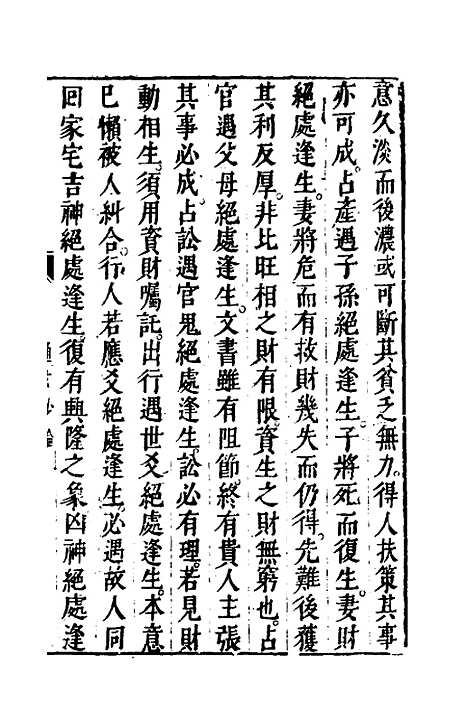 意久淡而後濃或可斷其貧乏無力得人扶策其事
亦可成占產遇子孫絕處逢生子將死而復生妻財
絕處逢生妻將危而有救財幾失而仍得先難後獲
其利反厚非比旺相之財有限資生之財無窮也占
官遇父母絕處逢生文書雖有阻節終有貴人主張
其事必成占訟遇官鬼絕處逢生訟必有理若見財
動相生須用資財囑託出行遇世爻絕處逢生本意
已懶被人糾合行人若應爻絕處逢生必遇故人同
回家宅吉神絕處逢生復有興隆之象凶神絕處逢